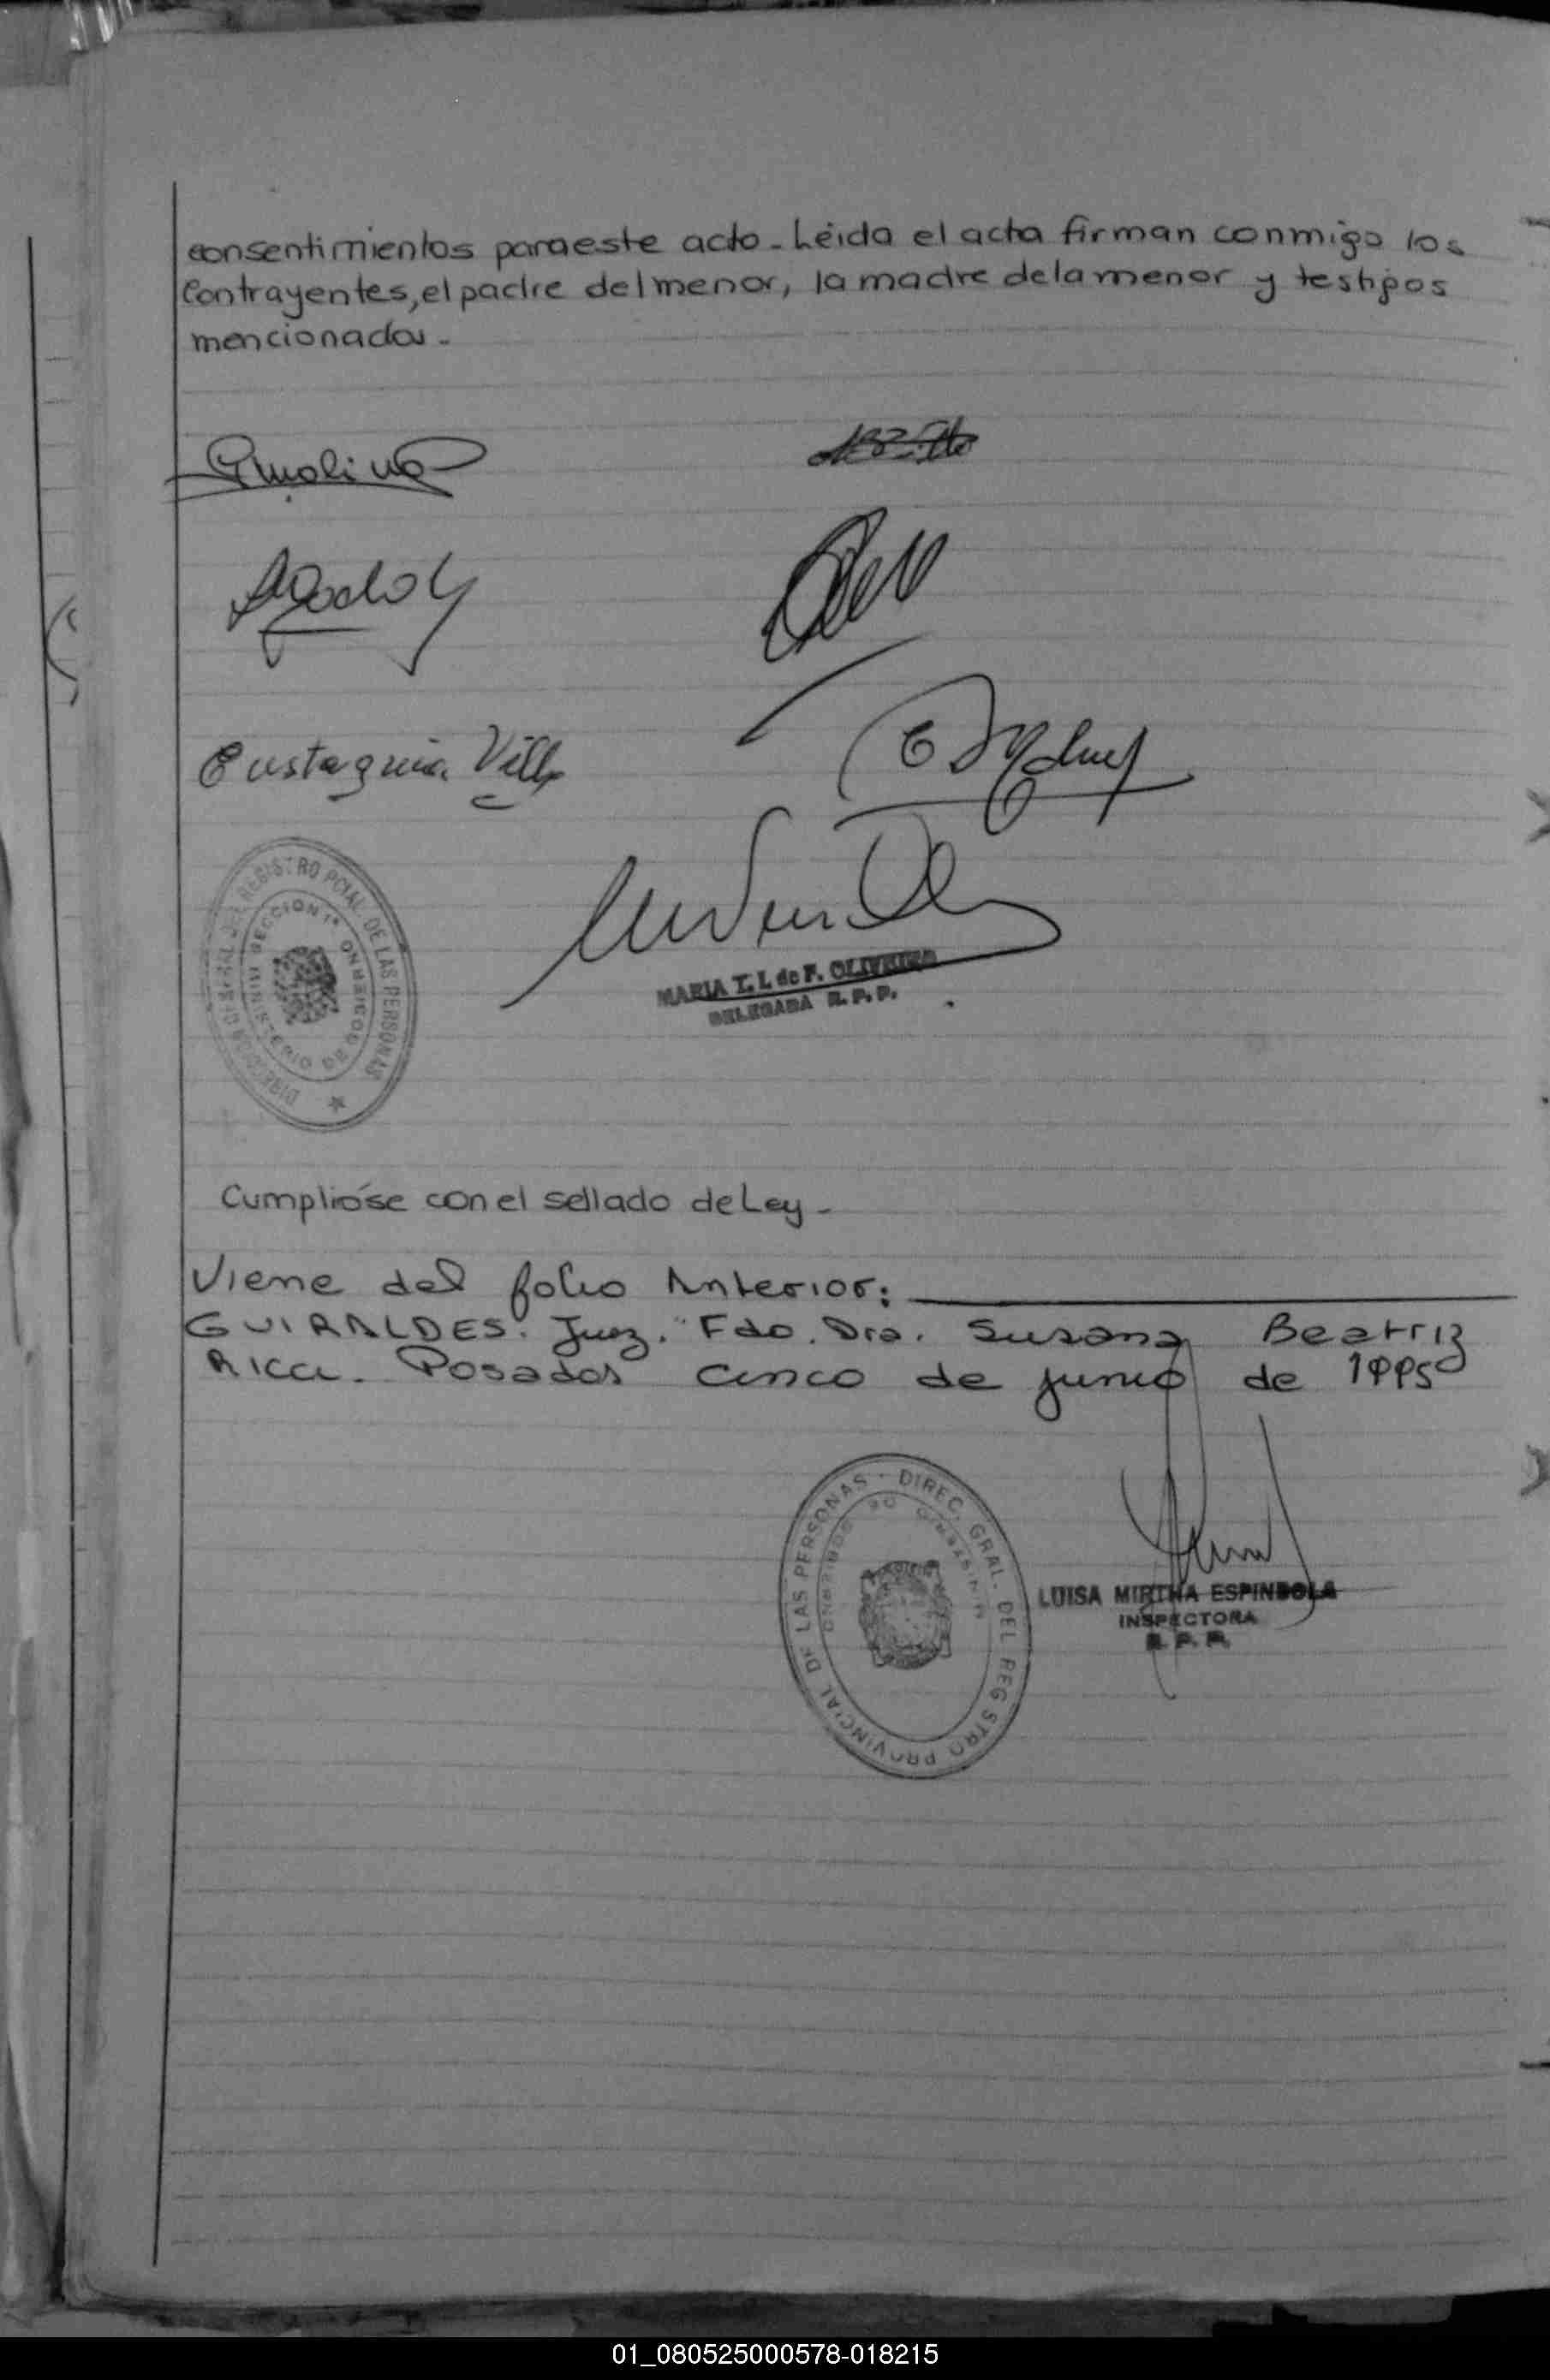 consentimientos para este acto - Leída el acta firman conmigo los
Contrayentes, el padre del menor, la madre de la menor y testigos
mencionados -
Molina
AGodoy
Eustaquia Villa
DIRECCION GENERAL DEL REGISTRO PCIAL. DE LAS PERSONAS
MINISTERIO DE GOBIERNO SECCION 1ª
MARIA T. I. de F. OLIVEIRA
DELEGADA R. P. P.
Cumplióse con el sellado de Ley -
Viene del folio Anterior:
GUIRALDES. Juez. "Fdo. Dra. Susana Beatriz
Ricci. Posadas cinco de junio de 1995
DIREC. GRAL. DEL REGISTRO PROVINCIAL DE LAS PERSONAS
MINISTERIO DE GOBIERNO
LUISA MIRTHA ESPINDOLA
INSPECTORA
R. P. P.
01_080525000578-018215